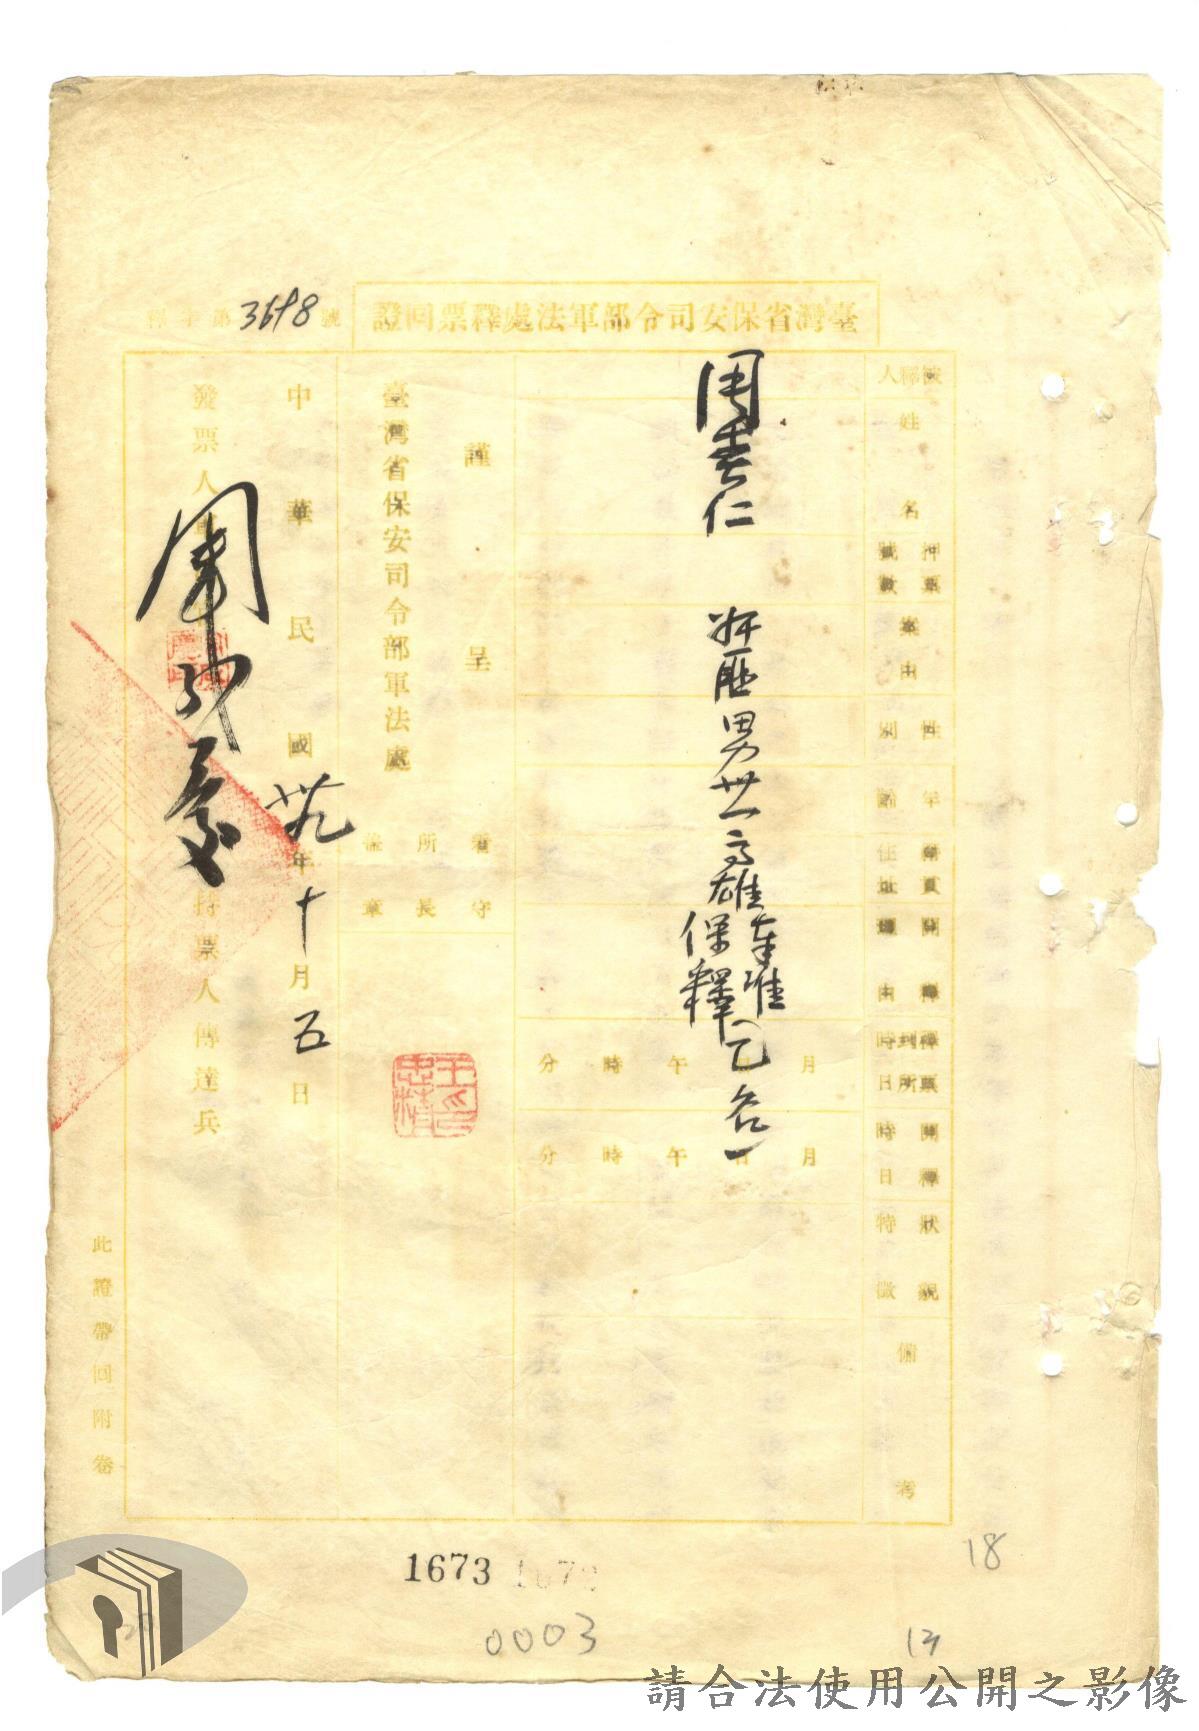 臺灣省保安司令部軍法處釋票回證
釋字第3698號
被釋人
姓名
押票號數
案由
性別
年齡
籍貫住址
開釋理由
釋票到所時日
開釋時日
狀貌特徵
備考
周春仁
叛匪
男
卅一
高雄
奉准保釋
月日午時分
月日午時分
謹呈
臺灣省保安司令部軍法處
看守所長
蓋章
王忠精印
中華民國卅九年十月五日
發票人軍
持票人傳達兵
此證帶回附卷
1673
0003
18
13
請合法使用公開之影像